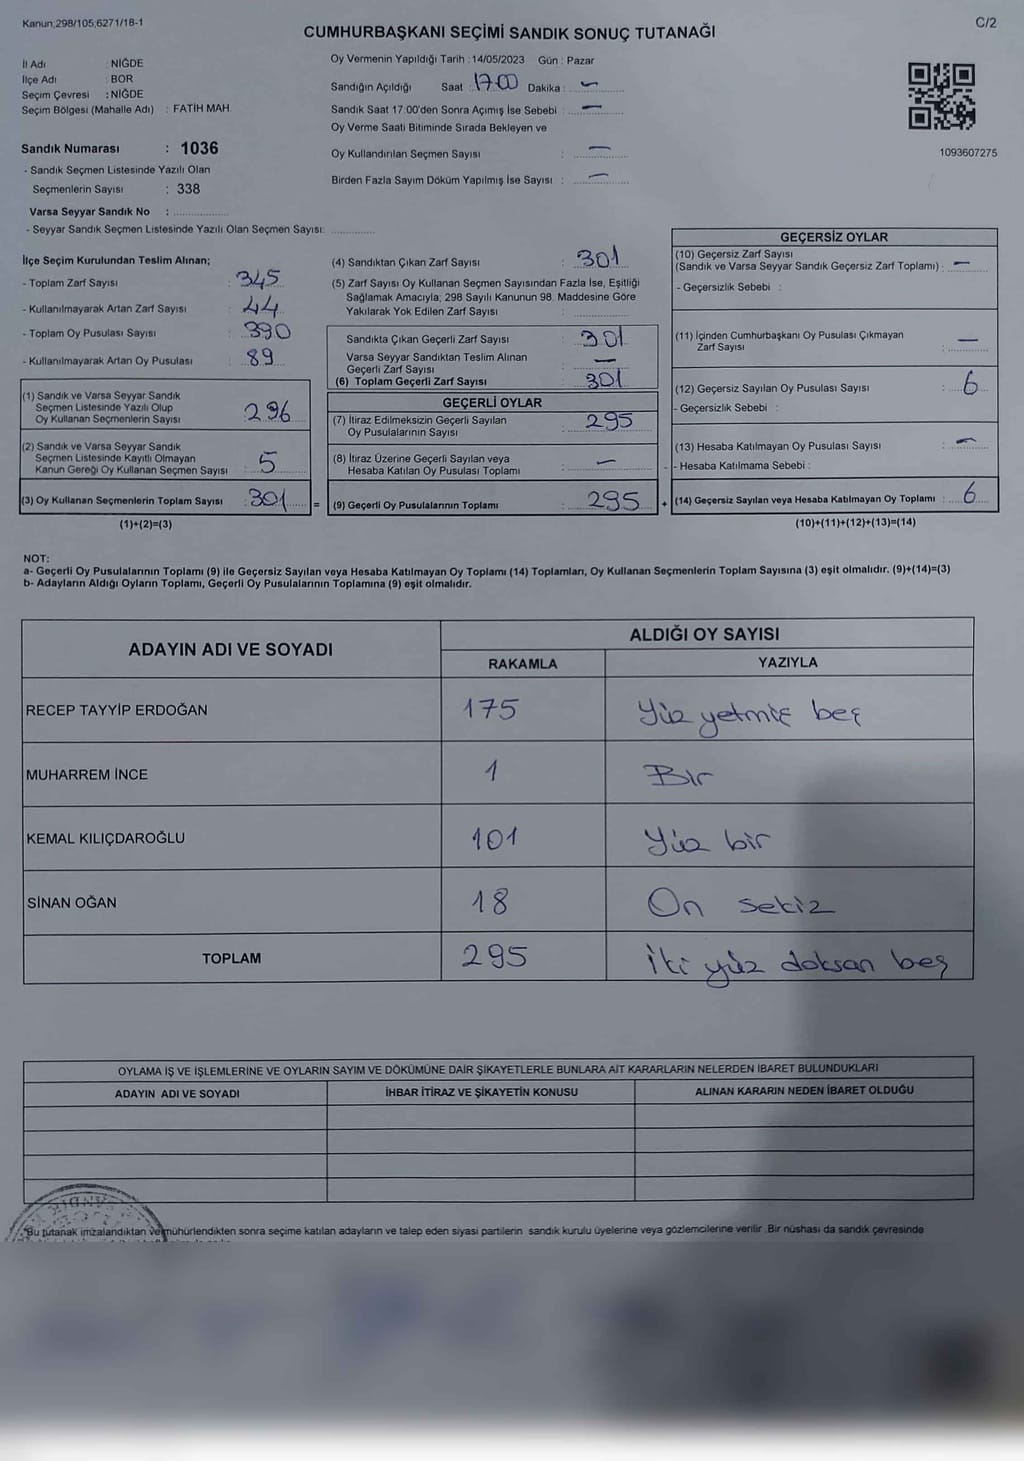 Kanun;298/105;6271/18-1
C/2
CUMHURBAŞKANI SEÇİMİ SANDIK SONUÇ TUTANAĞI
İl Adı : NİĞDE
İlçe Adı : BOR
Seçim Çevresi : NİĞDE
Seçim Bölgesi (Mahalle Adı) : FATİH MAH.
Sandık Numarası : 1036
- Sandık Seçmen Listesinde Yazılı Olan
Seçmenlerin Sayısı : 338
Varsa Seyyar Sandık No : ..................
- Seyyar Sandık Seçmen Listesinde Yazılı Olan Seçmen Sayısı: ..............
Oy Vermenin Yapıldığı Tarih : 14/05/2023 Gün : Pazar
Sandığın Açıldığı Saat : 17.00 Dakika : —
Sandık Saat 17:00'den Sonra Açımış İse Sebebi : —
Oy Verme Saati Bitiminde Sırada Bekleyen ve
Oy Kullandırılan Seçmen Sayısı : —
Birden Fazla Sayım Döküm Yapılmış İse Sayısı : —
1093607275
İlçe Seçim Kurulundan Teslim Alınan;
- Toplam Zarf Sayısı : 345
- Kullanılmayarak Artan Zarf Sayısı : 44
- Toplam Oy Pusulası Sayısı : 390
- Kullanılmayarak Artan Oy Pusulası : 89
(1) Sandık ve Varsa Seyyar Sandık
Seçmen Listesinde Yazılı Olup
Oy Kullanan Seçmenlerin Sayısı : 296
(2) Sandık ve Varsa Seyyar Sandık
Seçmen Listesinde Kayıtlı Olmayan
Kanun Gereği Oy Kullanan Seçmen Sayısı : 5
(3) Oy Kullanan Seçmenlerin Toplam Sayısı : 301 =
(1)+(2)=(3)
(4) Sandıktan Çıkan Zarf Sayısı : 301
(5) Zarf Sayısı Oy Kullanan Seçmen Sayısından Fazla İse, Eşitliği
Sağlamak Amacıyla; 298 Sayılı Kanunun 98. Maddesine Göre
Yakılarak Yok Edilen Zarf Sayısı : ..............
Sandıkta Çıkan Geçerli Zarf Sayısı : 301
Varsa Seyyar Sandıktan Teslim Alınan
Geçerli Zarf Sayısı : —
(6) Toplam Geçerli Zarf Sayısı : 301
GEÇERLİ OYLAR
(7) İtiraz Edilmeksizin Geçerli Sayılan
Oy Pusulalarının Sayısı : 295
(8) İtiraz Üzerine Geçerli Sayılan veya
Hesaba Katılan Oy Pusulası Toplamı : —
(9) Geçerli Oy Pusulalarının Toplamı : 295 +
GEÇERSİZ OYLAR
(10) Geçersiz Zarf Sayısı
(Sandık ve Varsa Seyyar Sandık Geçersiz Zarf Toplamı) : —
- Geçersizlik Sebebi :
(11) İçinden Cumhurbaşkanı Oy Pusulası Çıkmayan
Zarf Sayısı : —
(12) Geçersiz Sayılan Oy Pusulası Sayısı : 6
- Geçersizlik Sebebi :
(13) Hesaba Katılmayan Oy Pusulası Sayısı : —
- Hesaba Katılmama Sebebi :
(14) Geçersiz Sayılan veya Hesaba Katılmayan Oy Toplamı : 6
(10)+(11)+(12)+(13)=(14)
NOT:
a- Geçerli Oy Pusulalarının Toplamı (9) ile Geçersiz Sayılan veya Hesaba Katılmayan Oy Toplamı (14) Toplamları, Oy Kullanan Seçmenlerin Toplam Sayısına (3) eşit olmalıdır. (9)+(14)=(3)
b- Adayların Aldığı Oyların Toplamı, Geçerli Oy Pusulalarının Toplamına (9) eşit olmalıdır.
ADAYIN ADI VE SOYADI
ALDIĞI OY SAYISI
RAKAMLA YAZIYLA
RECEP TAYYİP ERDOĞAN 175 Yüz yetmiş beş
MUHARREM İNCE 1 Bir
KEMAL KILIÇDAROĞLU 101 Yüz bir
SİNAN OĞAN 18 On sekiz
TOPLAM 295 İki yüz doksan beş
OYLAMA İŞ VE İŞLEMLERİNE VE OYLARIN SAYIM VE DÖKÜMÜNE DAİR ŞİKAYETLERLE BUNLARA AİT KARARLARIN NELERDEN İBARET BULUNDUKLARI
ADAYIN ADI VE SOYADI İHBAR İTİRAZ VE ŞİKAYETİN KONUSU ALINAN KARARIN NEDEN İBARET OLDUĞU
*Bu tutanak imzalandıktan ve mühürlendikten sonra seçime katılan adayların ve talep eden siyasi partilerin sandık kurulu üyelerine veya gözlemcilerine verilir .Bir nüshası da sandık çevresinde